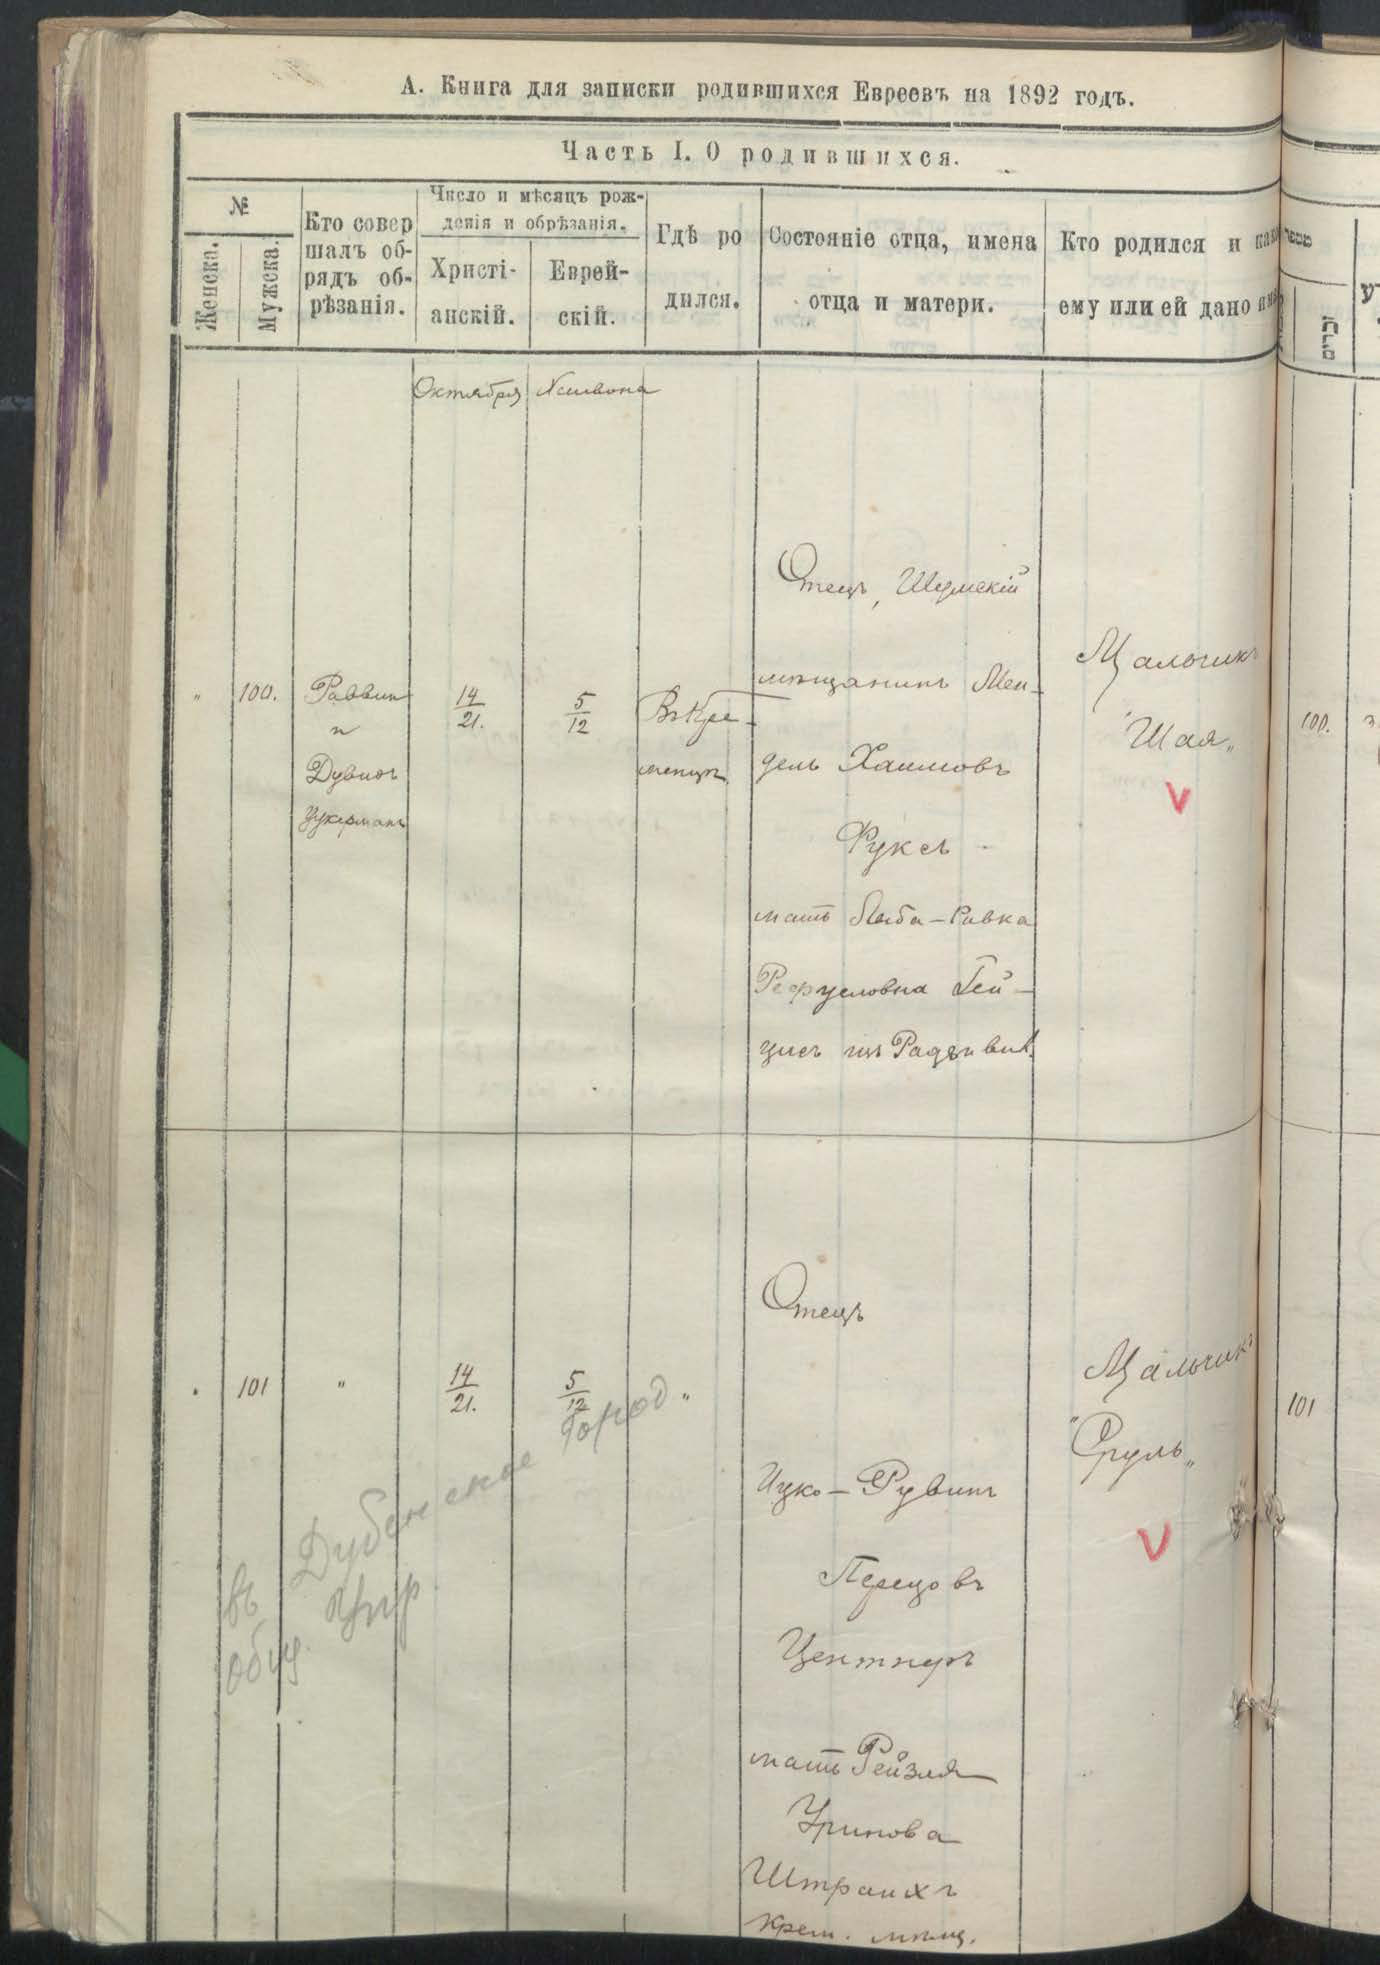 А. Книга для записки родившихся Евреевъ на 1892 годъ.
Часть I. О родившихся.
№
Женска.
Мужска.
Кто совер
шалъ об-
рядъ об-
рѣзанія.
Число и мѣсяцъ рож-
денія и обрѣзанія.
Христі-
анскій.
Еврей-
скій.
Гдѣ ро
дился.
Состояніе отца, имена
отца и матери.
Кто родился и как
ему или ей дано
Октября
Хешвона
"
100.
Раввин
и
Дувидъ
Цукерманъ
14
21.
5
12
Въ Кре-
менцѣ
Отецъ, Шумскій
мѣщанинъ Мен-
дель Хаимовъ
Фуксъ
мать Лыба-Ривка
Рефуловна Гей-
цисъ изъ Радзивил.
Мальчикъ
"Шая"
100.
101
"
14
21.
5
12
"
Отецъ
Ицко-Рувинъ
Перецовъ
Центнеръ
мать Рейзля
Уринова
Штраихъ
Крем. мѣщ.
Мальчикъ
"Сруль"
101
въ Дубенское Город
общ. Упр
זכרים